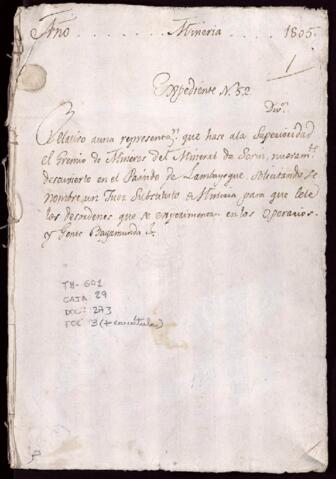 Año Mineria 1805
1
Expediente N. 32
Relativo a una representan. que hase ala Superioridad
el Gremio de Mineros del Mineral de Sorin, nuevamte.
descuvierto en el Partido de Lambayeque, Solicitando se
nombre, un Juez Substituto de Mineria para que cele
los desordenes que se experimentan en los Operarios,
y Gente Bagamunda &.
TH-601
CAJA 29
DOC: 273
FOL 3 (+ carátula)